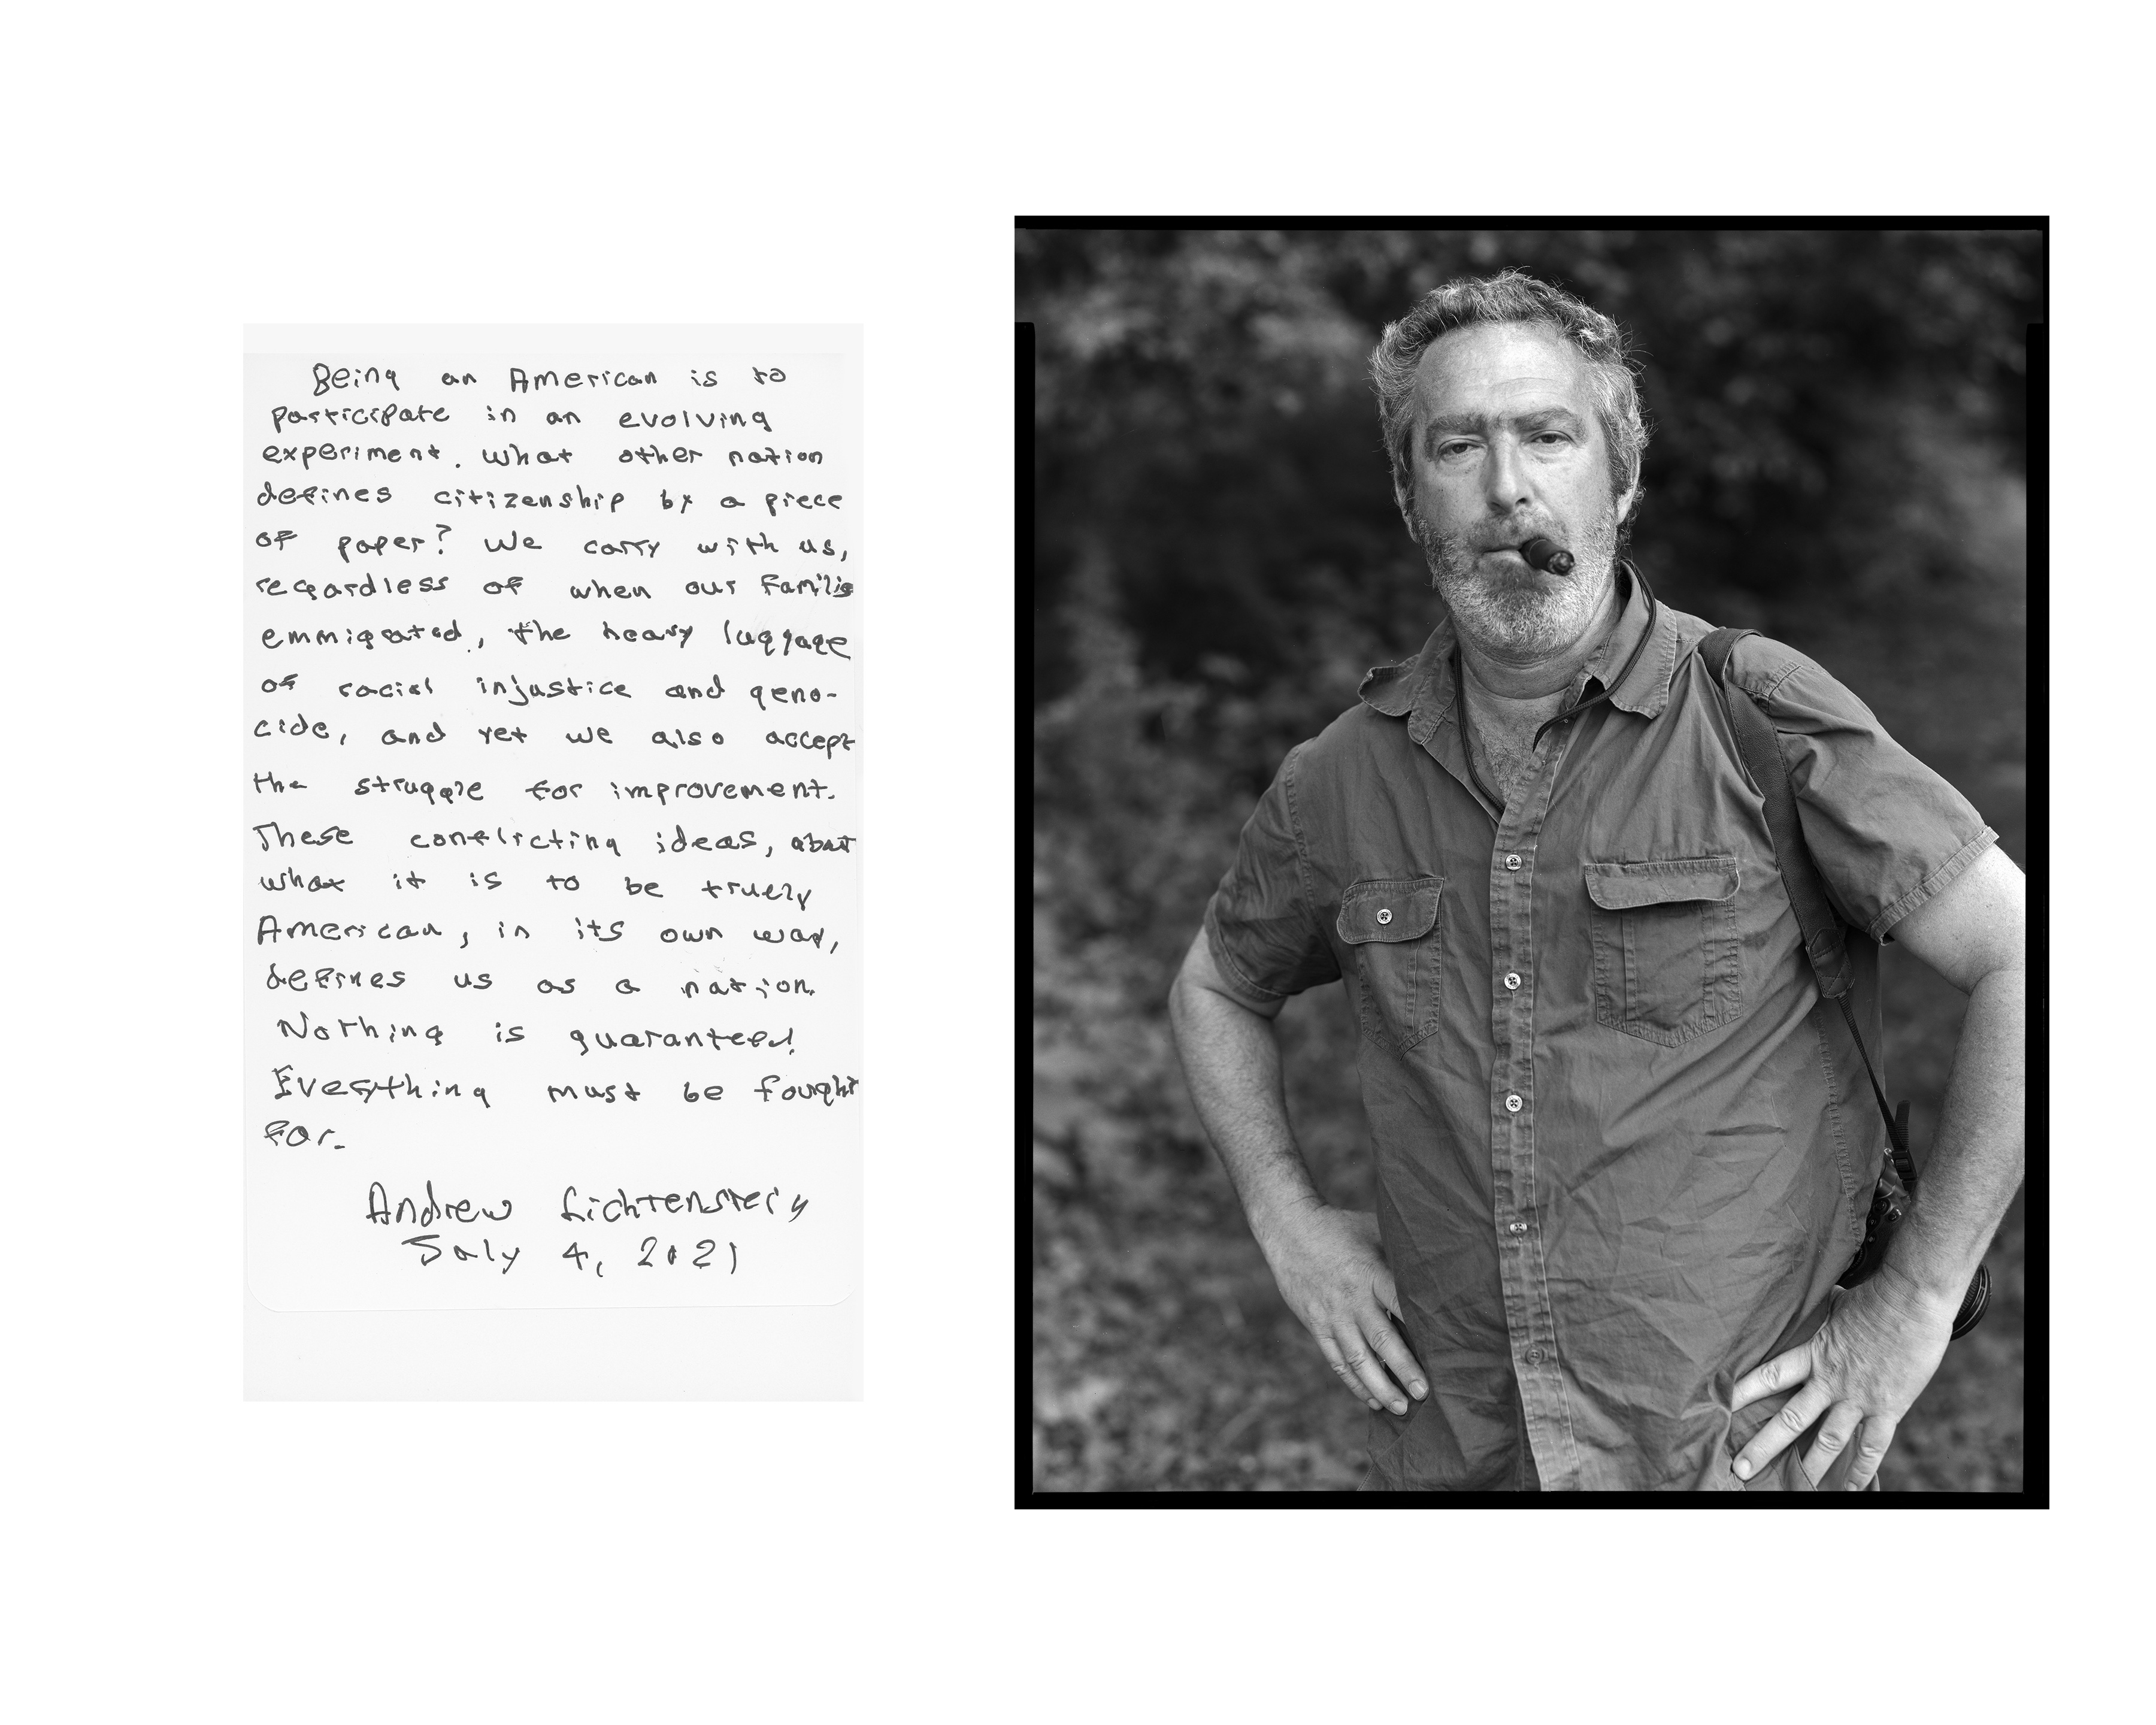 Being an American is to
participate in an evolving
experiment. What other nation
defines citizenship by a piece
of paper? We carry with us,
regardless of when our familie
emmigrated, the heavy luggage
of racial injustice and geno-
cide, and yet we also accept
the struggle for improvement.
These conflicting ideas, about
what it is to be truely
American, in its own way,
defines us as a nation.
Nothing is guaranteed!
Everything must be fought
for.
Andrew Lichtenstein
July 4, 2021